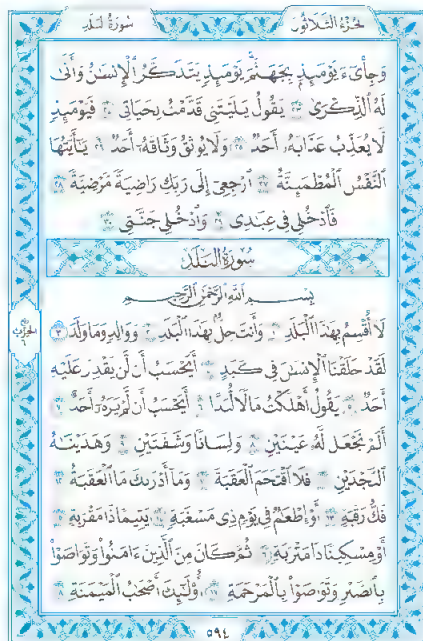 الجزء الثلاثون سورة البلد
وَجِايْءَ يَوْمَئِذٍ بِجَهَنَّمَ يَوْمَئِذٍ يَتَذَكَّرُ الْإِنسَنُ وَأَنَّى
لَهُ الذِّكْرَى ٢٣ يَقُولُ يَلَيْتَنِي قَدَّمْتُ لِحَيَاتِي ٢٤ فَيَوْمَئِذٍ
لَا يُعَذِّبُ عَذَابَهُ أَحَدٌ ٢٥ وَلَا يُوثِقُ وَثَاقَهُ أَحَدٌ ٢٦ يَأَيَّتُهَا
النَّفْسُ الْمُطْمَئِنَّةُ ٢٧ ارْجِعِي إِلَى رَبِّكِ رَاضِيَةً مَّرْضِيَّةً ٢٨
فَادْخُلِي فِي عِبَدِي ٢٩ وَادْخُلِي جَنَّتِي ٣٠
سُورَةُ الْبَلَدِ
بِسْمِ اللَّهِ الرَّحْمَنِ الرَّحِيمِ
لَا أُقْسِمُ بِهَذَا الْبَلَدِ ١ وَأَنتَ حِلٌّ بِهَذَا الْبَلَدِ ٢ وَوَالِدٍ وَمَا وَلَدَ ٣
لَقَدْ خَلَقْنَا الْإِنسَنَ فِي كَبَدٍ ٤ أَيَحْسَبُ أَن لَّن يَقْدِرَ عَلَيْهِ
أَحَدٌ ٥ يَقُولُ أَهْلَكْتُ مَالًا لُّبَدًا ٦ أَيَحْسَبُ أَن لَّمْ يَرَهُ أَحَدٌ ٧
أَلَمْ نَجْعَل لَّهُ عَيْنَيْنِ ٨ وَلِسَانًا وَشَفَتَيْنِ ٩ وَهَدَيْنَهُ
النَّجْدَيْنِ ١٠ فَلَا اقْتَحَمَ الْعَقَبَةَ ١١ وَمَا أَدْرَىكَ مَا الْعَقَبَةُ ١٢
فَكُّ رَقَبَةٍ ١٣ أَوْ إِطْعَمٌ فِي يَوْمٍ ذِي مَسْغَبَةٍ ١٤ يَتِيمًا ذَا مَقْرَبَةٍ ١٥
أَوْ مِسْكِينًا ذَا مَتْرَبَةٍ ١٦ ثُمَّ كَانَ مِنَ الَّذِينَ ءَامَنُوا وَتَوَاصَوْا
بِالصَّبْرِ وَتَوَاصَوْا بِالْمَرْحَمَةِ ١٧ أُوْلَئِكَ أَصْحَبُ الْمَيْمَنَةِ ١٨
٥٩٤